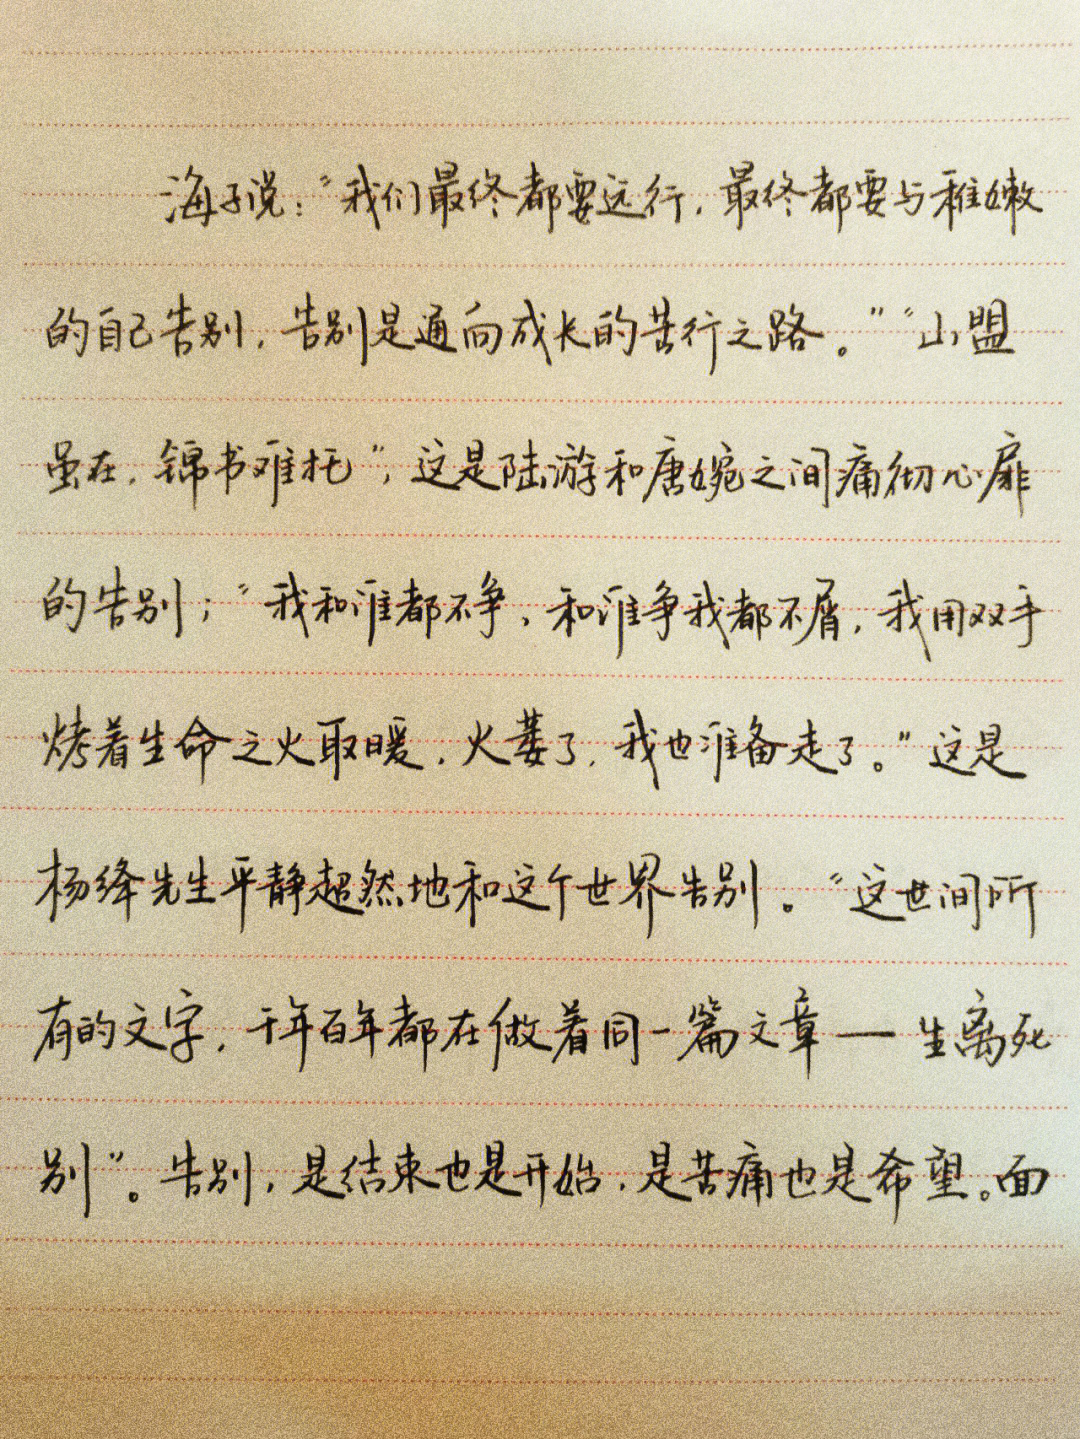 海子说:“我们最终都要远行,最终都要与稚嫩
的自己告别,告别是通向成长的苦行之路。”“山盟
虽在,锦书难托”,这是陆游和唐婉之间痛彻心扉
的告别;“我和谁都不争,和谁争我都不屑,我用双手
烤着生命之火取暖,火萎了,我也准备走了。”这是
杨绛先生平静超然地和这个世界告别。“这世间所
有的文字,千年百年都在做着同一篇文章—生离死
别”。告别,是结束也是开始,是苦痛也是希望。面